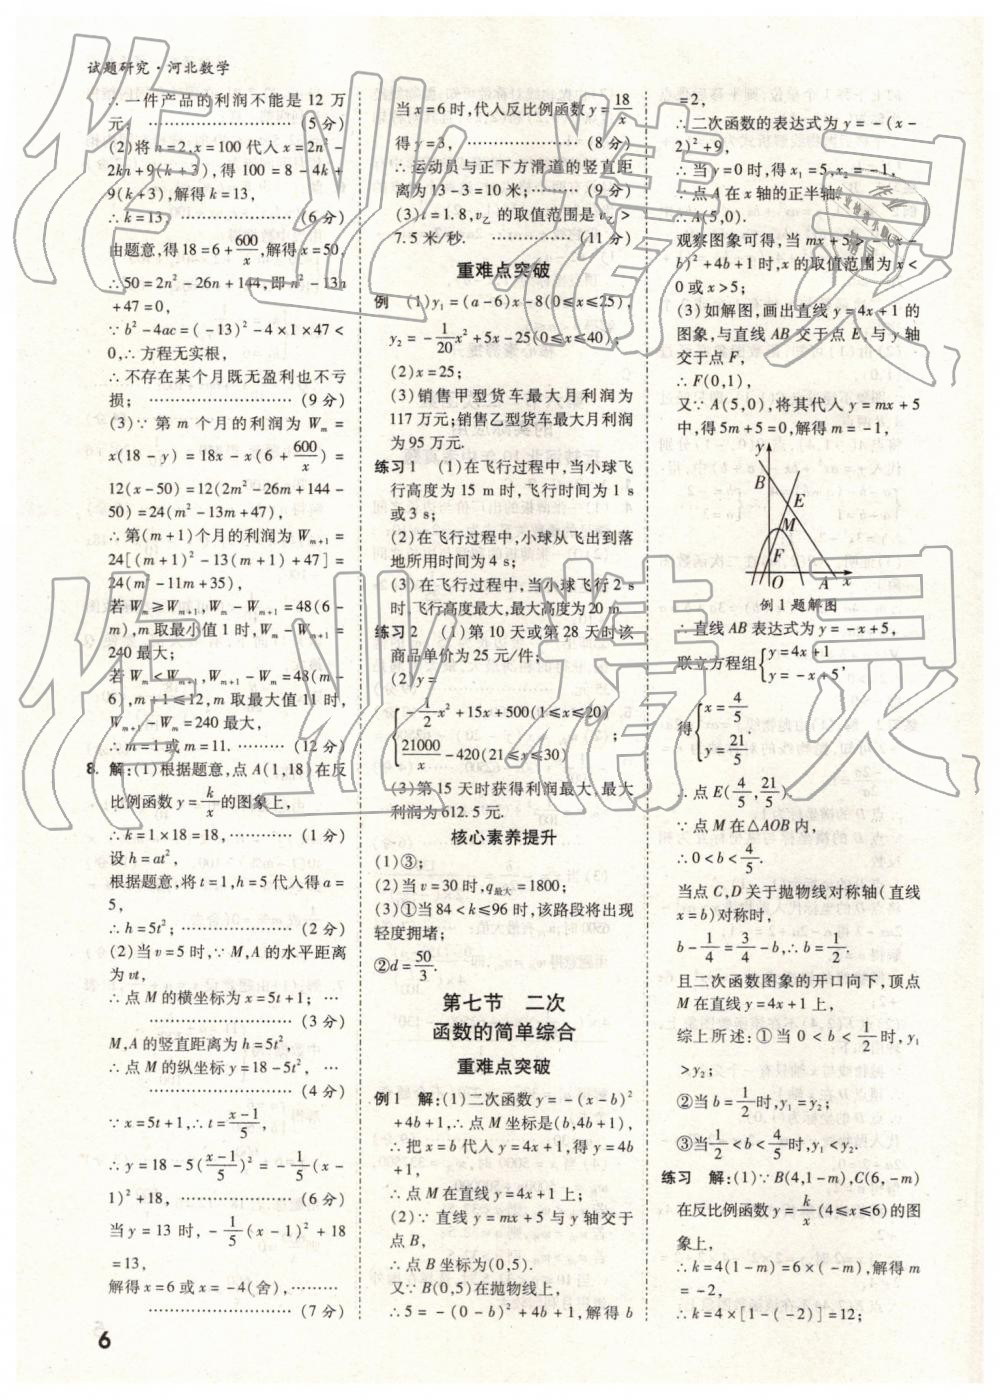 试题研究·河北数学
∴一件产品的利润不能是 12 万
元; …………………… (5 分)
(2)将 n=2,x=100 代入 x=2n²-
2kn+9(k+3),得 100=8-4k+
9(k+3),解得 k=13,
∴k=13. ……………… (6 分)
由题意,得 18=6+600/x,解得 x=50,
∴50=2n²-26n+144,即 n²-13n
+47=0,
∵b²-4ac=(-13)²-4×1×47<
0,∴方程无实根,
∴不存在某个月既无盈利也不亏
损; …………………… (9 分)
(3)∵第 m 个月的利润为 Wₘ=
x(18-y)=18x-x(6+600/x)=
12(x-50)=12(2m²-26m+144-
50)=24(m²-13m+47),
∴第(m+1)个月的利润为 Wₘ₊₁=
24[(m+1)²-13(m+1)+47]=
24(m²-11m+35),
若 Wₘ≥Wₘ₊₁,Wₘ-Wₘ₊₁=48(6-
m),m 取最小值 1 时,Wₘ-Wₘ₊₁=
240 最大;
若 Wₘ<Wₘ₊₁,Wₘ₊₁-Wₘ=48(m-
6),m+1≤12,m 取最大值 11 时,
Wₘ₊₁-Wₘ=240 最大,
∴m=1 或 m=11. ……… (12 分)
8. 解:(1)根据题意,点 A(1,18)在反
比例函数 y=k/x的图象上,
∴k=1×18=18,………… (1 分)
设 h=at²,
根据题意,将 t=1,h=5 代入得 a=
5,
∴h=5t²; ……………… (2 分)
(2)当 v=5 时,∵M,A 的水平距离
为 vt,
∴点 M 的横坐标为 x=5t+1; …
…………………… (3 分)
M,A 的竖直距离为 h=5t²,
∴点 M 的纵坐标 y=18-5t², …
…………………… (4 分)
∵x=5t+1,∴t=(x-1)/5,
∴y=18-5((x-1)/5)²=-1/5(x-
1)²+18, ……………… (6 分)
当 y=13 时,-1/5(x-1)²+18
=13,
解得 x=6 或 x=-4(舍),………
…………………… (7 分)
当 x=6 时,代入反比例函数 y=18/x
得 y=3, ……………… (8 分)
∴运动员与正下方滑道的竖直距
离为 13-3=10 米; …… (9 分)
(3)t=1.8,v乙 的取值范围是 v乙>
7.5 米/秒. …………… (11 分)
重难点突破
例 (1)y₁=(a-6)x-8(0≤x≤25),
y₂=-1/20x²+5x-25(0≤x≤40);
(2)x=25;
(3)销售甲型货车最大月利润为
117 万元;销售乙型货车最大月利润
为 95 万元.
练习 1 (1)在飞行过程中,当小球飞
行高度为 15 m 时,飞行时间为 1 s
或 3 s;
(2)在飞行过程中,小球从飞出到落
地所用时间为 4 s;
(3)在飞行过程中,当小球飞行 2 s
时,飞行高度最大,最大高度为 20 m.
练习 2 (1)第 10 天或第 28 天时该
商品单价为 25 元/件;
(2)y=
{-1/2x²+15x+500(1≤x≤20)
21000/x-420(21≤x≤30) ;
(3)第 15 天时获得利润最大,最大
利润为 612.5 元.
核心素养提升
(1)③;
(2)当 v=30 时,q最大=1800;
(3)①当 84<k≤96 时,该路段将出现
轻度拥堵;
②d=50/3.
第七节 二次
函数的简单综合
重难点突破
例 1 解:(1)二次函数 y=-(x-b)²
+4b+1,∴点 M 坐标是(b,4b+1),
∴把 x=b 代入 y=4x+1,得 y=4b
+1,
∴点 M 在直线 y=4x+1 上;
(2)∵直线 y=mx+5 与 y 轴交于
点 B,
∴点 B 坐标为(0,5).
又∵B(0,5)在抛物线上,
∴5=-(0-b)²+4b+1,解得 b
=2,
∴二次函数的表达式为 y=-(x-
2)²+9,
∴当 y=0 时,得 x₁=5,x₂=-1,
∴点 A 在 x 轴的正半轴.
∴A(5,0).
观察图象可得,当 mx+5>-(x-
b)²+4b+1 时,x 的取值范围为 x<
0 或 x>5;
(3)如解图,画出直线 y=4x+1 的
图象,与直线 AB 交于点 E,与 y 轴
交于点 F,
∴F(0,1),
又∵A(5,0),将其代入 y=mx+5
中,得 5m+5=0,解得 m=-1,
y
B
E
M
F
O
A
x
例 1 题解图
∴直线 AB 表达式为 y=-x+5,
联立方程组{y=4x+1
y=-x+5,
得{x=4/5
y=21/5,
∴点 E(4/5,21/5).
∵点 M 在△AOB 内,
∴0<b<4/5.
当点 C,D 关于抛物线对称轴(直线
x=b)对称时,
b-1/4=3/4-b,∴b=1/2.
且二次函数图象的开口向下,顶点
M 在直线 y=4x+1 上,
综上所述:①当 0<b<1/2时,y₁
>y₂;
②当 b=1/2时,y₁=y₂;
③当1/2<b<4/5时,y₁<y₂.
练习 解:(1)∵B(4,1-m),C(6,-m)
在反比例函数 y=k/x(4≤x≤6)的图
象上,
∴k=4(1-m)=6×(-m),解得 m
=-2,
∴k=4×[1-(-2)]=12;
6
作业精灵
作业精灵